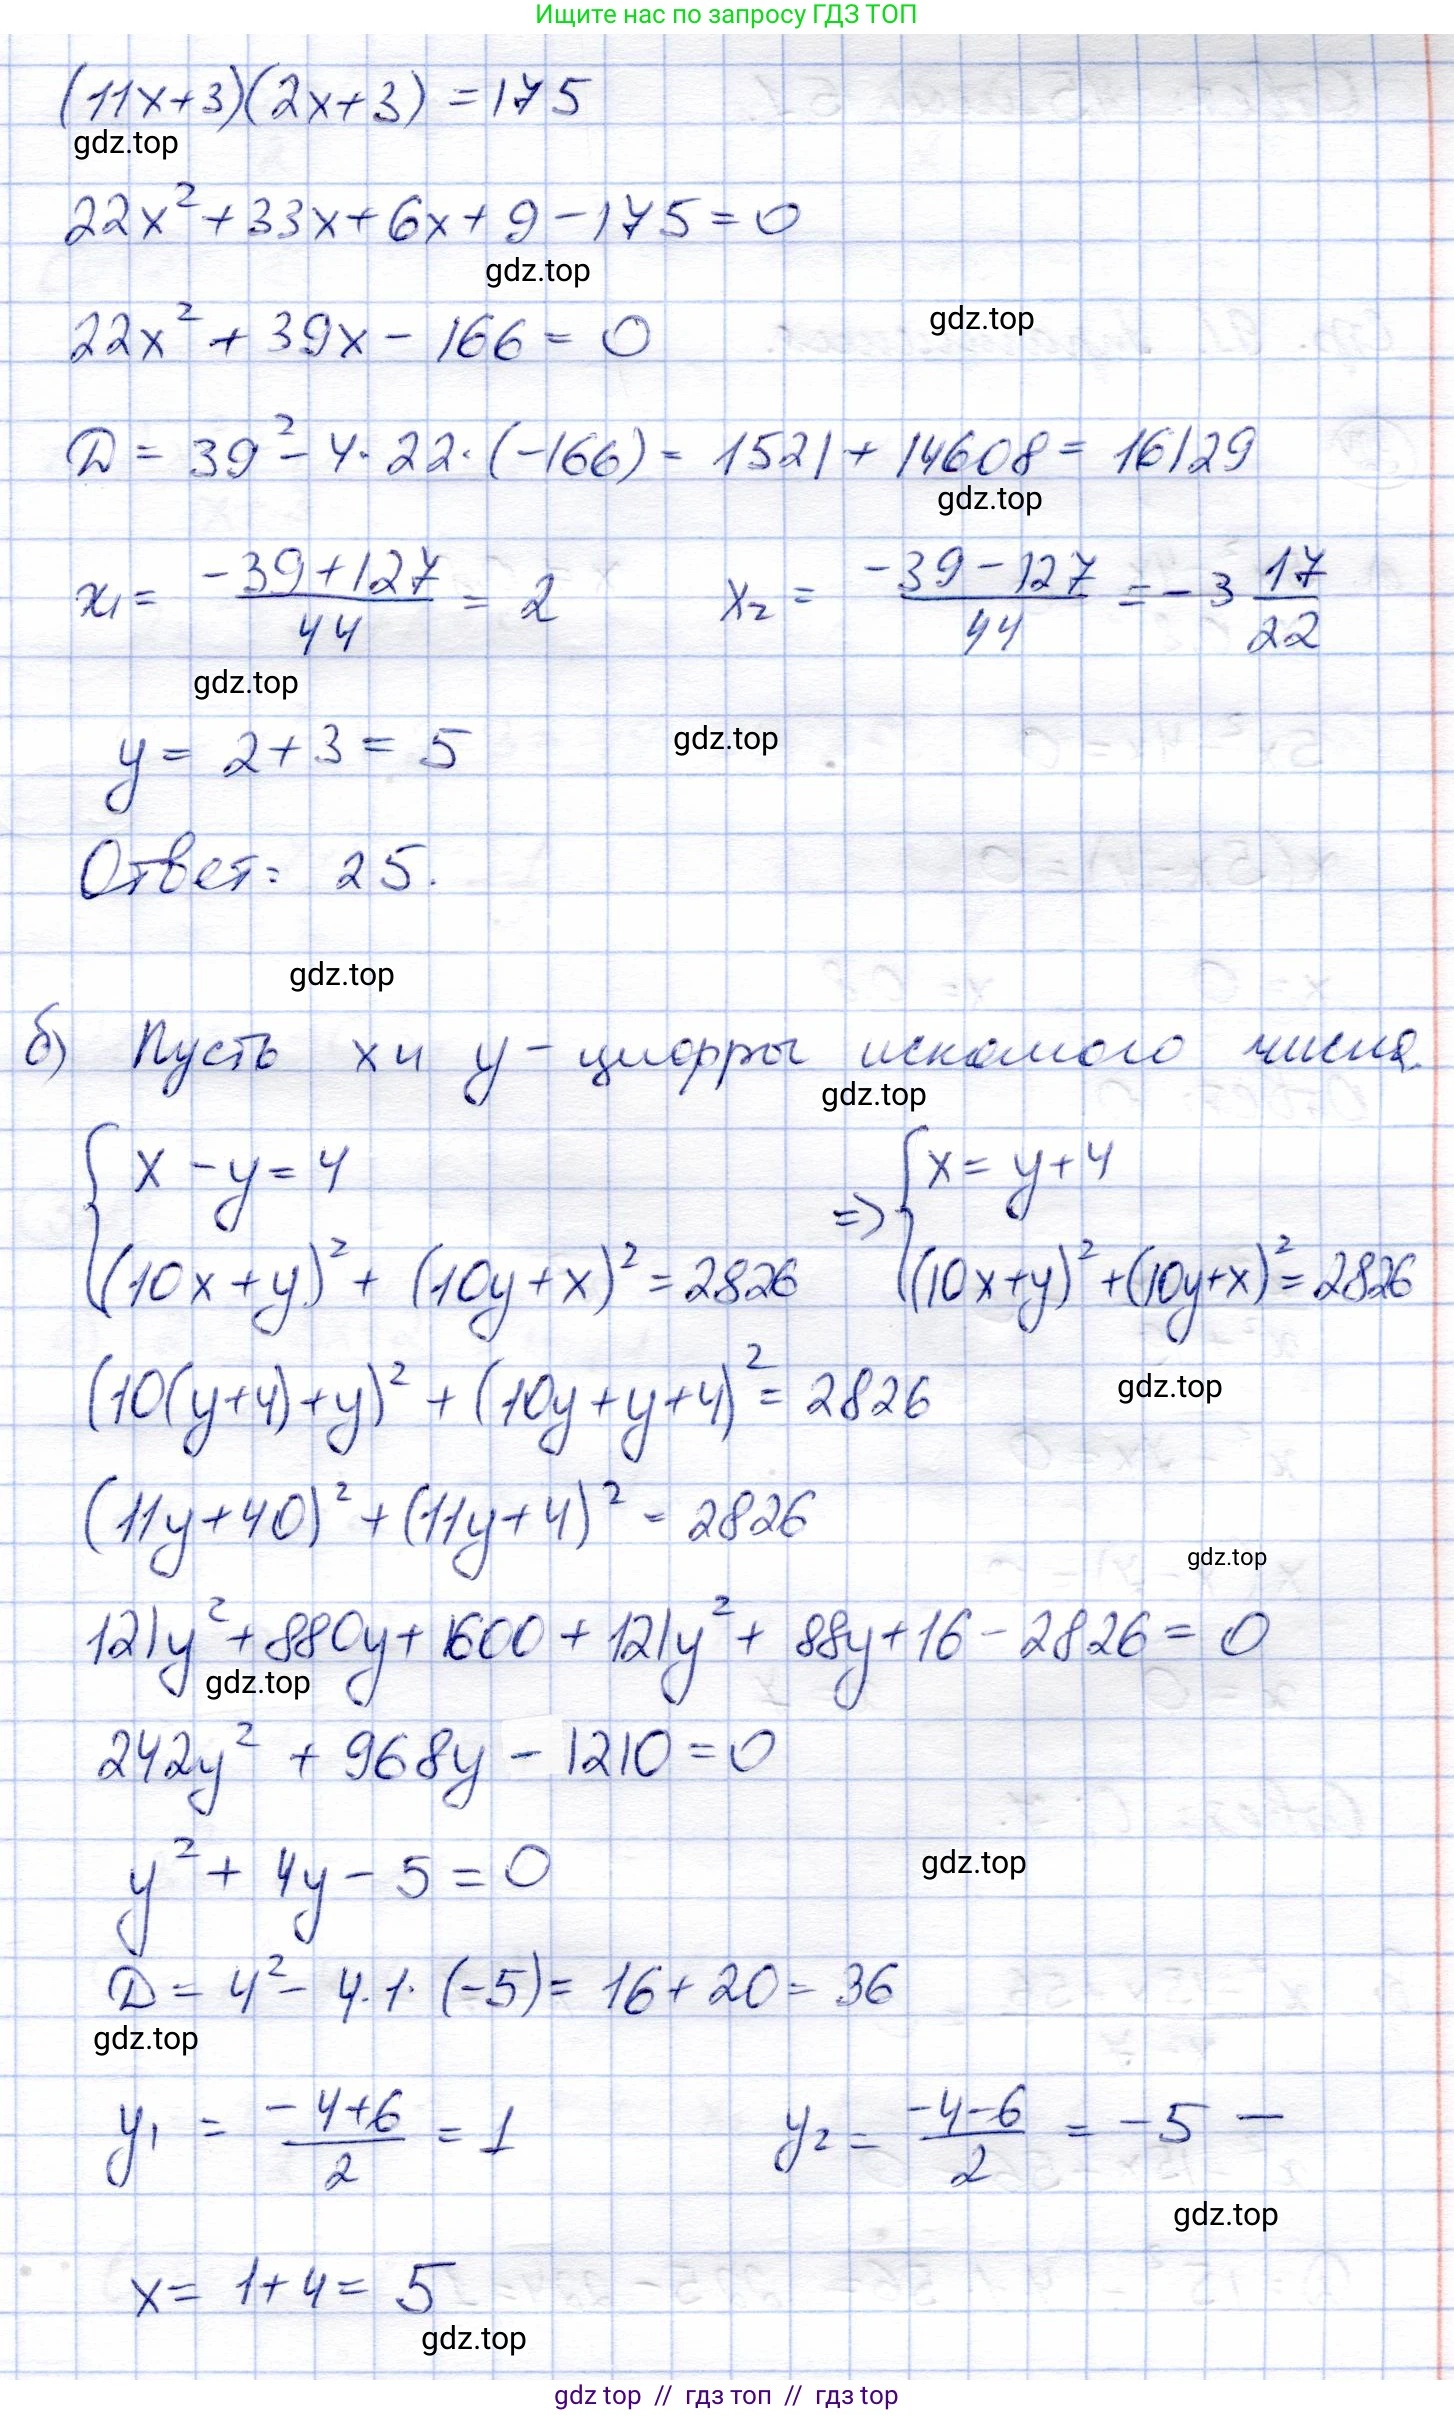 Ищите нас по запросу ГДЗ ТОП
(11x+3)(2x+3) = 175
gdz.top
22x² + 33x + 6x + 9 - 175 = 0
gdz.top
22x² + 39x - 166 = 0
gdz.top
D = 39² - 4·22·(-166) = 1521 + 14608 = 16129
gdz.top
x₁ = (-39+127)/44 = 2 x₂ = (-39-127)/44 = -3 17/22
gdz.top
y = 2+3 = 5
gdz.top
Ответ: 25.
gdz.top
б) Пусть x и y - цифры искомого числа.
gdz.top
{ x - y = 4 => { x = y+4
(10x+y)² + (10y+x)² = 2826 (10x+y)² + (10y+x)² = 2826
(10(y+4)+y)² + (10y+y+4)² = 2826
gdz.top
(11y+40)² + (11y+4)² = 2826
gdz.top
121y² + 880y + 1600 + 121y² + 88y + 16 - 2826 = 0
gdz.top
242y² + 968y - 1210 = 0
y² + 4y - 5 = 0
gdz.top
D = 4² - 4·1·(-5) = 16 + 20 = 36
gdz.top
y₁ = (-4+6)/2 = 1 y₂ = (-4-6)/2 = -5 —
gdz.top
x = 1+4 = 5
gdz.top
gdz top // гдз топ // гдз top